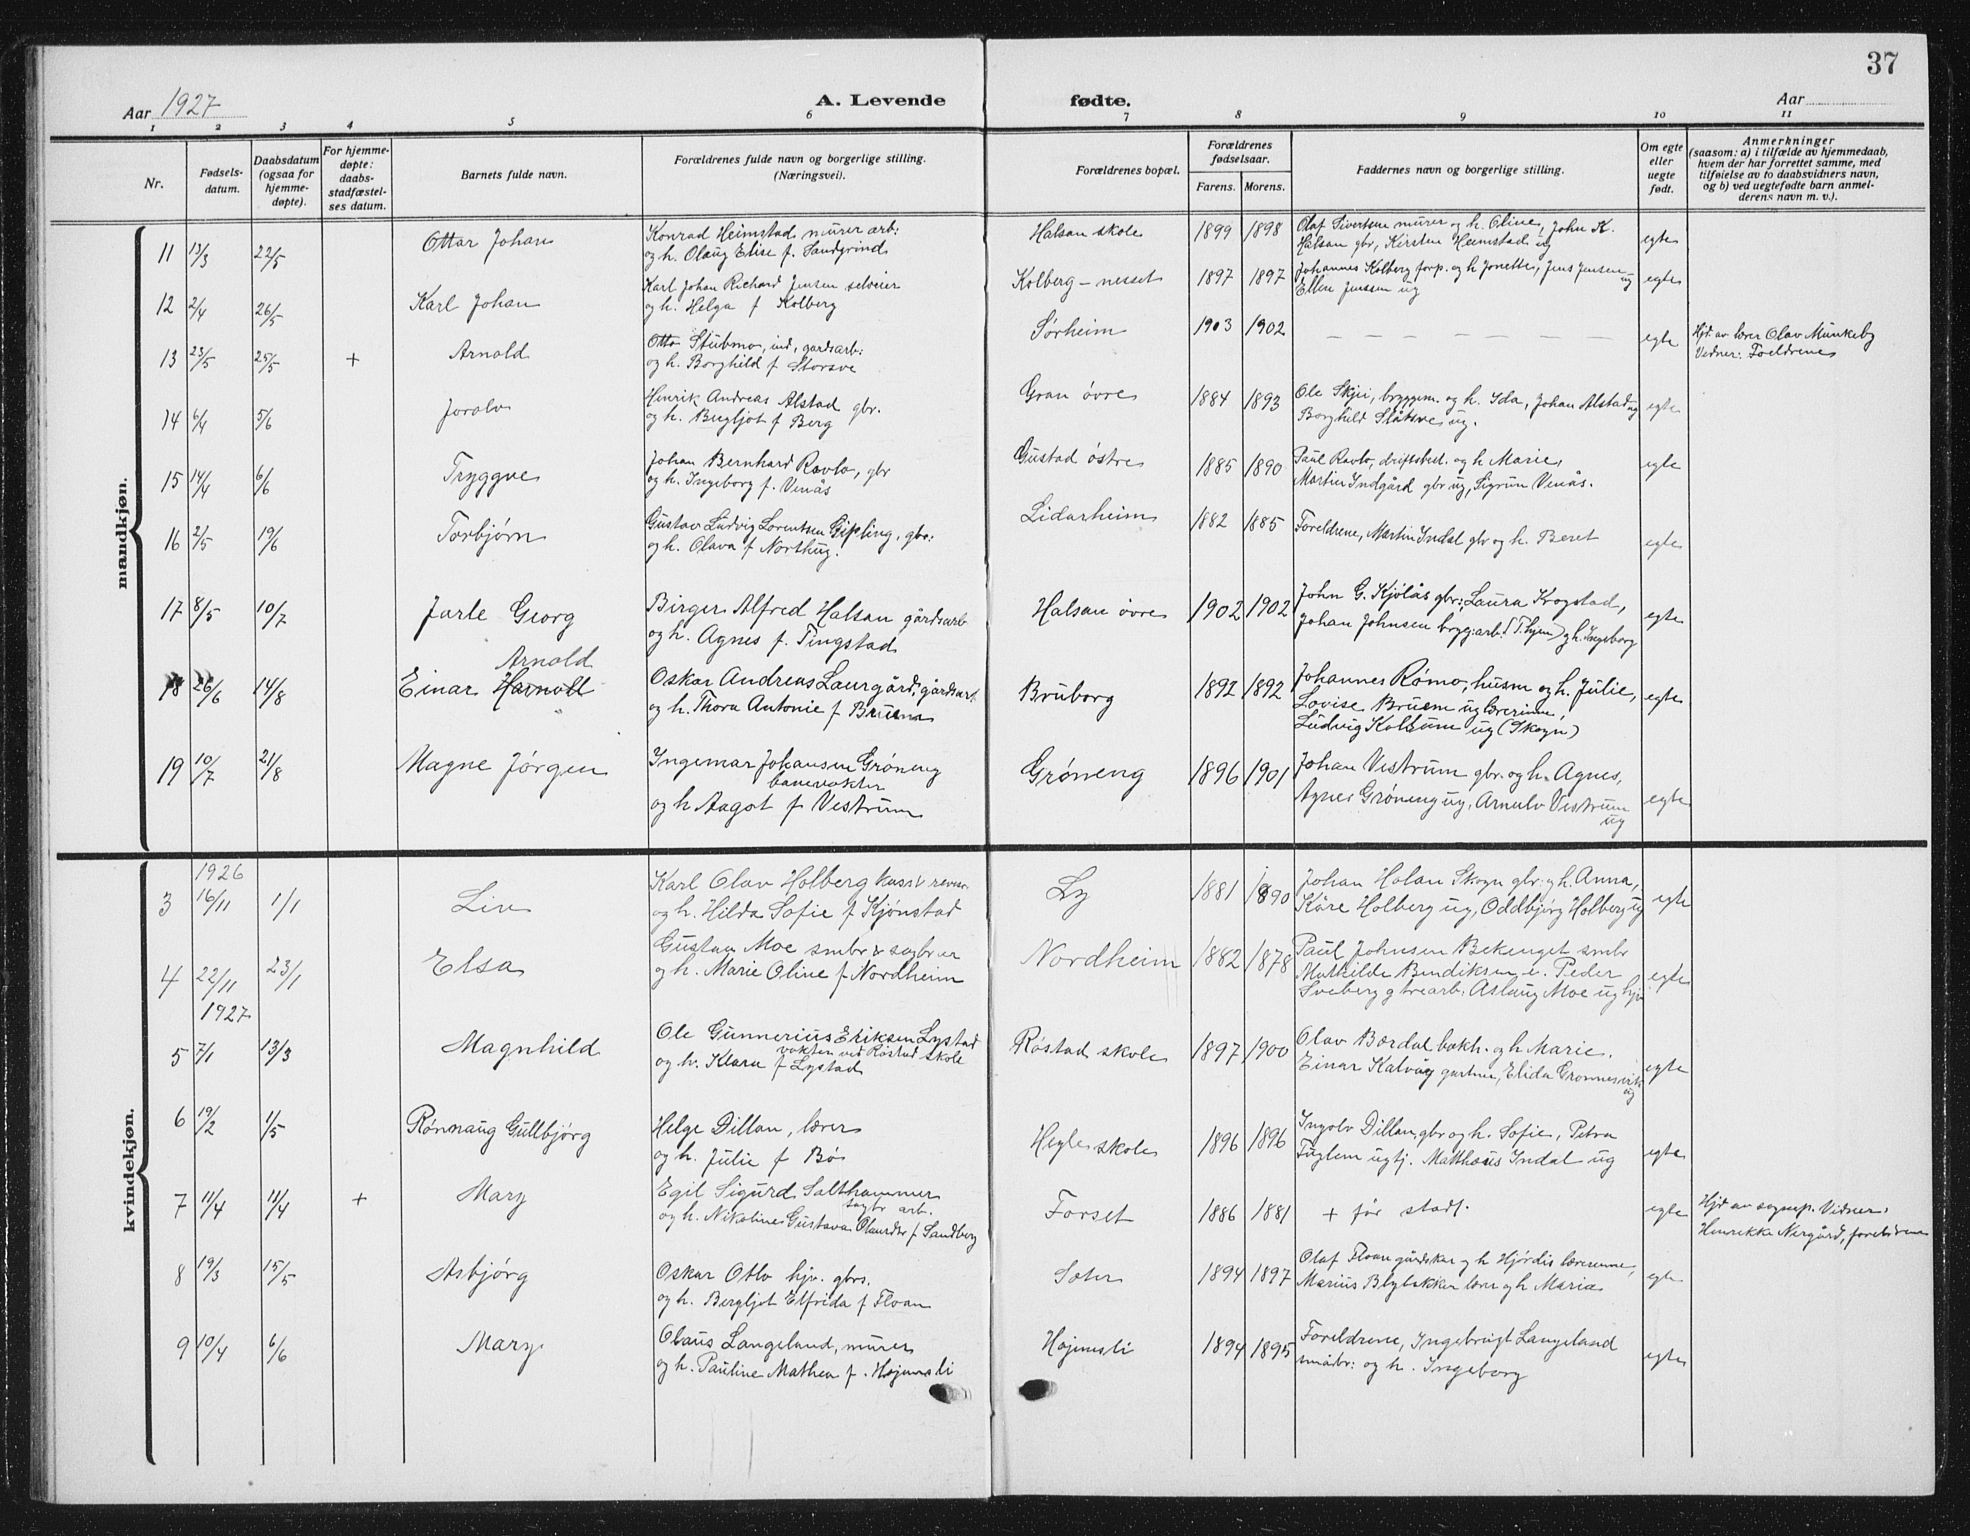 37
Aar 1927
A. Levende fødte.
Aar
1 2 3 4 5 6 7 8 9 10 11
Nr.
Fødsels-
datum.
Daabsdatum
(ogsaa for
hjemme-
døpte).
For hjemme-
døpte:
daabs-
stadfæstel-
ses datum.
Barnets fulde navn.
Forældrenes fulde navn og borgerlige stilling.
(Næringsvei).
Forældrenes bopæl.
Forældrenes
fødselsaar.
Farens. Morens.
Faddernes navn og borgerlige stilling.
Om egte
eller
uegte
født.
Anmerkninger
(saasom: a) i tilfælde av hjemmedaab,
hvem der har forrettet samme, med
tilføielse av to daabsvidners navn,
og b) ved uegtefødte barn anmel-
derens navn m. v.).
mandkjøn.
11 13/3 22/5 Ottar Johan
Konrad Heimstad murer arb:
og h. Olaug Elise f. Sandgrind
Halsan skole 1899 1898
Olaf Sivertsen murer og h. Oline, John K.
Halsan gbr, Kirsten Heimstad ug
egte
12 2/4 26/5 Karl Johan
Karl Johan Richard Jensen selveier
og h. Helga f Kolberg
Kolberg - nesset 1897 1897
Johannes Kolberg forp. og h Jonette, Jens Jensen ug
Ellen Jenssen ug
egte
13 23/5 25/5 + Arnold
Otto Stubmo, ind, gardsarb:
og h. Borghild f Storsve
Sørheim 1903 1902
— — — — — — —
egte
Hjd. av lærer Olav Munkeby
Vidner: Foreldrene
14 6/4 5/6 Jorolv
Henrik Andreas Alstad gbr.
og h. Bergljot f Berg
Gran øvre 1884 1893
Ole Skjei, byggm. og h. Ida, Johan Alstad ug
Borghild Slåtsve ug.
egte
15 14/4 6/6 Tryggve
Johan Bernhard Ravlo, gbr
og h. Ingeborg f. Venås
Gustad østre 1885 1890
Paul Ravlo, driftsbest. og h Marie,
Martin Indgård gbr ug, Sigrun Venås.
egte
16 2/5 19/6 Torbjørn
Gustav Ludvig Lorentsen Gipling, gbr:
og h. Olava f Northug.
Lidarheim 1882 1885
Foreldrene, Martin Indal gbr og h. Beret
egte
17 8/5 10/7 Jarle Georg
Birger Alfred Halsan gårdsarb
og h. Agnes f. Tingstad
Halsan øvre 1902 1902
John G. Kjølås gbr:, Laura Krogstad,
Johan Johnsen brygg.arb. (T.hjem) og h. Ingeborg
egte
18 26/6 14/8 Arnold
Einar Harnolt
Oskar Andreas Laurgård, gårdsarb.
og h. Thora Antonie f Bruem
Bruborg 1892 1892
Johannes Rømo, husm og h. Julie,
Lovise Bruem ug lærerinne,
Ludvig Kolsum ug (Skogn)
egte
19 10/7 21/8 Magne Jørgen
Ingemar Johansen Grøneng
banevokter
og h Aagot f Vestrum
Grøneng 1896 1901
Johan Vestrum gbr. og h. Agnes,
Agnes Grøneng ug, Arnulv Vestrum
ug
egte
kvindekjøn.
1926
3 16/11 1/1 Liv
Karl Olav Holberg kass &
og h. Hilda Sofie f Kjønstad
Ly 1881 1890
Johan Holan Skogn gbr og h. Anna,
Kåre Holberg ug, Oddbjørg Holberg ug
egte
4 22/11 23/1 Elsa
Gustav Moe smbr & sagbr
og h. Marie Oline f Nordheim
Nordheim 1882 1878
Paul Johnsen Bekenget smbr
Mathilde Bendiksen e. Peder
Sveberg g trearb: Aslaug Moe ug hjv
egte
1927
5 7/1 13/3 Magnhild
Ole Gunnerius Eriksen Lystad
vokter ved Røstad skole
og h. Klara f Lystad
Røstad skole 1897 1900
Olav Bærdal bokh. og h Marie.
Einar Kalvåg gartner, Elida Grønnesvik
ug
egte
6 19/2 1/5 Rønnaug Gullbjørg
Helge Dillan, lærer
og h. Julie f Bø
Hegle skole 1896 1896
Ingolv Dillan, gbr og h. Sofie, Petra
Fuglem ug tj. Matthæus Indal ug
egte
7 11/4 11/4 + Mary
Egil Sigurd Salthammer
sagbr arb.
og h. Nikoline Gustava Olausdtr f Sandberg
Forset 1886 1881
+ før stadf.
egte
Hjd av sognep. Vidner:
Henrikke Nergård, foreldrene
8 19/3 15/5 Asbjørg
Oskar Otlo hjv. gbrs.
og h. Bergljot Elfrida f Floan
Soter 1894 1897
Olaf Floan gårdskar og h Hjørdis lærerinne,
Marius Blybakken lærer og h Maria
egte
9 10/4 6/6 Mary
Olaus Langeland, murer
og h. Pauline Mathea f. Højemsli
Højemsli 1894 1895
Foreldrene, Ingebrigt Langeland
småbr: og h. Ingeborg
egte